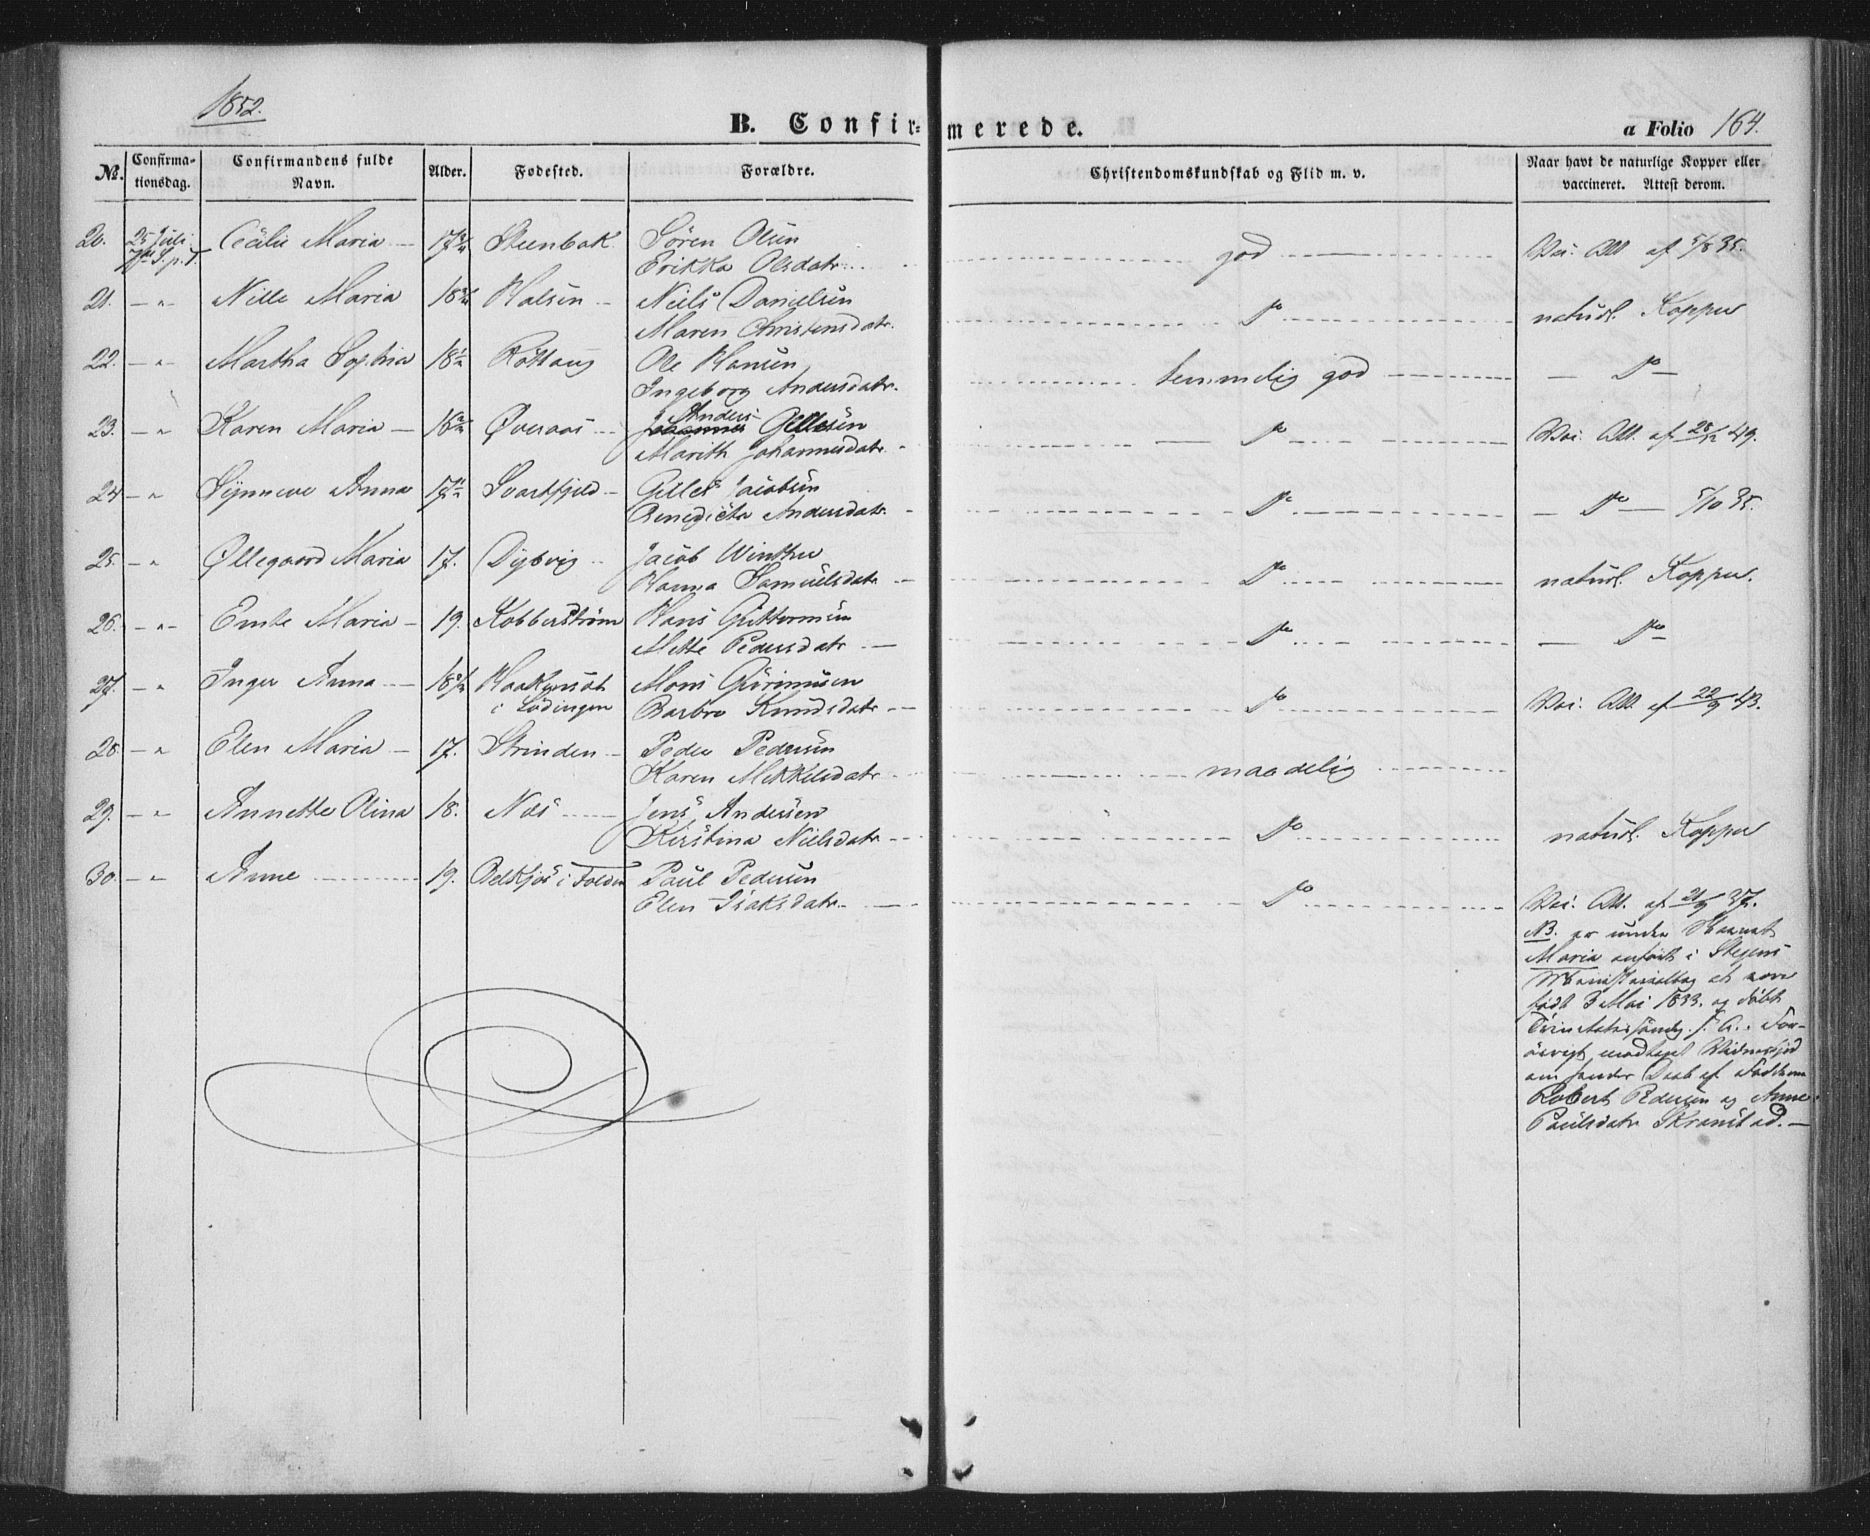 1852.
B. Confir=
merede.
a Folio 164.
№.
Confirma-
tionsdag.
Confirmandens fulde
Navn.
Alder.
Fødested.
Forældre.
Christendomskundskab og Flid m. v.
Naar havt de naturlige Kopper eller
vaccineret. Attest derom.
20. 25 Juli Cecilie Maria Steenbak Sören Olsen
Erikka Olsdatr. god Vac. Att. af 5/8 35.
21. — " Nille Maria Halsen Niels Danielsen
Maren Christensdatr. Do naturl. Kopper
22. — " Martha Sophia Røttang Ole Hansen
Ingeborg Andersdatr. temmelig god — Do —
Anders
23. — " Karen Maria Øveraas Johannes Gillesen
Marith Johannesdatr. Do Vac. Att. af 28/12 49.
24 — " Synneve Anna Svartfjeld Gilles Jacobsen
Benedicte Andersdatr. Do — Do — 5/10 35.
25. — " Øllegaard Maria 17. Dybvig Jacob Winther
Hanna Samuelsdatr. Do naturl. Kopper.
26. — " Emte Maria 19. Kobberstrøm Hans Guttormsen
Mette Pedersdatr. Do — Do
27. — " Inger Anna Mons Gurinusen
i Lødingen Barbro Knudsdatr. Do Vac. Att. af 22/9 43.
28. — " Elen Maria 17. Strinden Peder Pedersen
Karen Mikkelsdatr. maadelig
29. — " Annette Olina 18. Næs Jens Andersen
Kirstina Nielsdatr. Do naturl. Kopper
30. — " Anne 19. Belkjos i Folden Paul Pedersen
Elen Isaksdatr. Do Vac. Att. af 21/9 37.
NB. er under Navnet
Maria anført i Stegens
Ministerialbog at være
født 3 Mai 1833. og døbt
Trinitatissøndg. s. A. For-
øvrigt modtaget Vidnesbyrd
om hendes Daab af Fadderne
Robert Pedersen og Anne
Paulsdatr Skranstad.